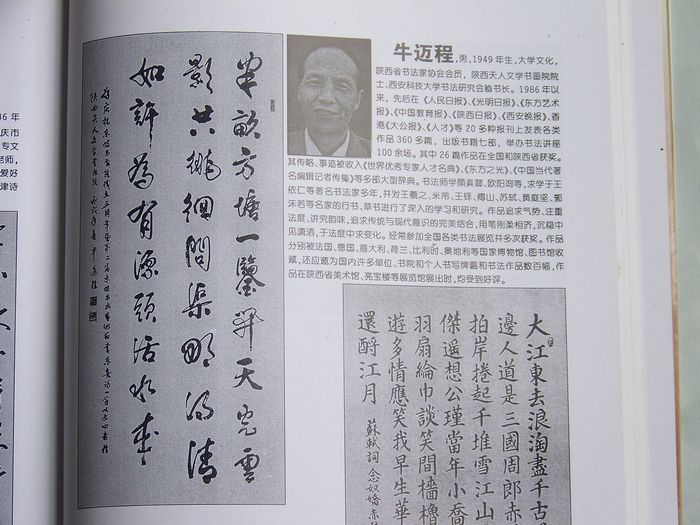 46 年
庆市
专文
老师,
爱好
津诗
半畝方塘一鑒開天光雲
影共徘徊問渠那得清
如許為有源頭活水來
牛迈程,男,1949 年生,大学文化,
陕西省书法家协会会员，陕西天人文学书画院院
士、西安科技大学书法研究会秘书长。1986 年以
来，先后在《人民日报》、《光明日报》、《东方艺术
报》、《中国教育报》、《陕西日报》、《西安晚报》、香
港《大公报》、《人才》等 20 多种报刊上发表各类
作品 360 多篇，出版书籍七部，举办书法讲座
100 余场。其中 26 篇作品在全国和陕西省获奖。
其传略、事迹被收入《世界优秀专家人才名典》、《东方之光》、《中国当代著
名编辑记者传集》等多部大型辞典。书法师学颜真卿、欧阳询等，求学于王
依仁等著名书法家多年，并对王羲之、米芾、王铎、傅山、苏轼、黄庭坚、郭
沫若等名家的行书、草书进行了深入的学习和研究。作品追求气势、注重
法度、讲究韵味，追求传统与现代意识的完美结合，用笔刚柔相济，沉稳中
见潇洒，于法度中求变化。经常参加全国各类书法展览并多次获奖。作品
分别被法国、德国、意大利、荷兰、比利时、奥地利等国家博物馆、图书馆收
藏，还应邀为国内许多单位、书院和个人书写牌匾和书法作品数百幅，作
品在陕西省美术馆、亮宝楼等展览馆展出时，均受到好评。
大江東去浪淘盡千古
邊人道是三國周郎赤
拍岸捲起千堆雪江山
傑遥想公瑾當年小喬
羽扇綸巾談笑間檣櫓
遊多情應笑我早生華
還酹江月
蘇軾詞 念奴嬌赤